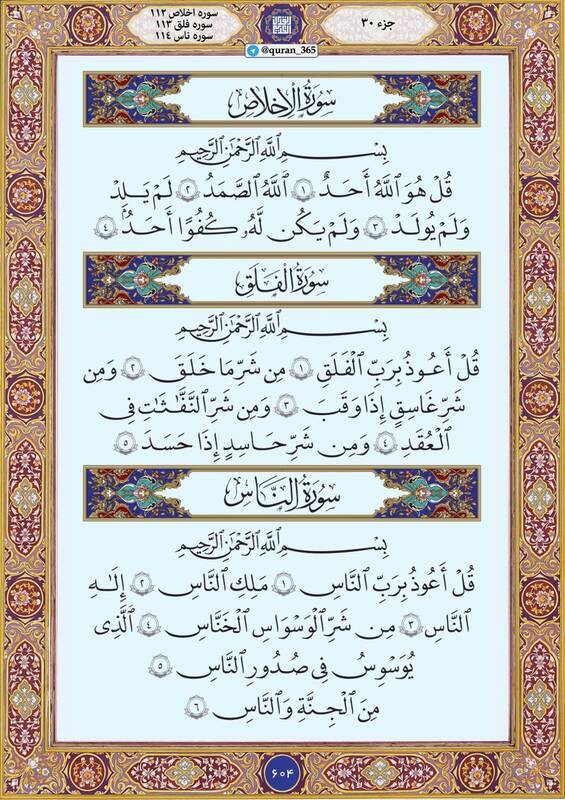 جزء ۳۰
سوره اخلاص ۱۱۲
سوره فلق ۱۱۳
سوره ناس ۱۱٤
@quran_365
سُورَةُ الْإِخْلَاصِ
بِسْمِ ٱللَّهِ ٱلرَّحْمَٰنِ ٱلرَّحِيمِ
قُلْ هُوَ ٱللَّهُ أَحَدٌ ۝١ ٱللَّهُ ٱلصَّمَدُ ۝٢ لَمْ يَلِدْ
وَلَمْ يُولَدْ ۝٣ وَلَمْ يَكُن لَّهُۥ كُفُوًا أَحَدٌۢ ۝٤
سُورَةُ الْفَلَقِ
بِسْمِ ٱللَّهِ ٱلرَّحْمَٰنِ ٱلرَّحِيمِ
قُلْ أَعُوذُ بِرَبِّ ٱلْفَلَقِ ۝١ مِن شَرِّ مَا خَلَقَ ۝٢ وَمِن
شَرِّ غَاسِقٍ إِذَا وَقَبَ ۝٣ وَمِن شَرِّ ٱلنَّفَّٰثَٰتِ فِى
ٱلْعُقَدِ ۝٤ وَمِن شَرِّ حَاسِدٍ إِذَا حَسَدَ ۝٥
سُورَةُ النَّاسِ
بِسْمِ ٱللَّهِ ٱلرَّحْمَٰنِ ٱلرَّحِيمِ
قُلْ أَعُوذُ بِرَبِّ ٱلنَّاسِ ۝١ مَلِكِ ٱلنَّاسِ ۝٢ إِلَٰهِ
ٱلنَّاسِ ۝٣ مِن شَرِّ ٱلْوَسْوَاسِ ٱلْخَنَّاسِ ۝٤ ٱلَّذِى
يُوَسْوِسُ فِى صُدُورِ ٱلنَّاسِ ۝٥
مِنَ ٱلْجِنَّةِ وَٱلنَّاسِ ۝٦
۶۰۴